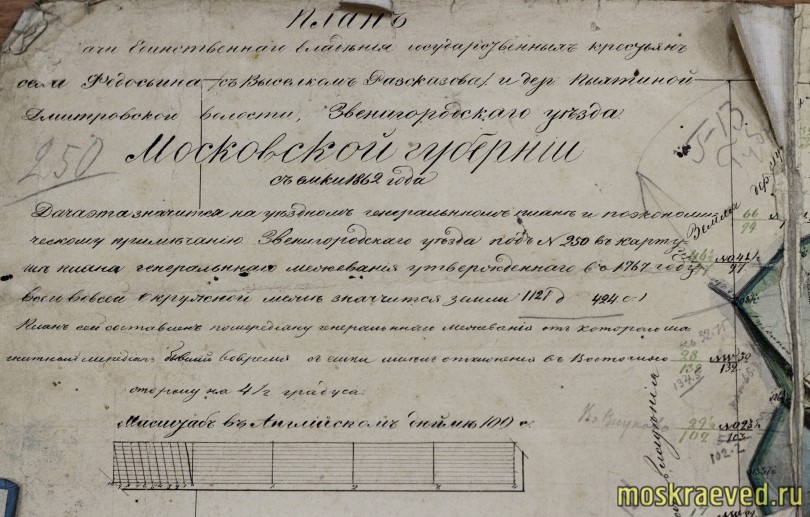 Планъ
дачи Единственнаго владѣнія государственныхъ крестьянъ
села Ѳедосьина /съ Выселкомъ Разсказова/ и дер. Пыхтиной
Дмитровской волости, Звенигородскаго уѣзда
Московской губерніи
съемки 1862 года
250
Дача эта значится на уѣздномъ генеральномъ планѣ и по экономи-
ческому примѣчанію Звенигородскаго уѣзда подъ № 250 въ
плана генеральнаго межеванія утвержденнаго въ 1767 году
всего во всей окружной межѣ значится земли 1121 д 424 с.
Планъ сей составленъ по меридіану генеральнаго межеванія отъ котораго ма-
гнитный меридіанъ бывшій во время съемки имѣлъ отклоненія въ Восточную
сторону на 4½ градуса.
Масштабъ въ Англійскомъ дюймѣ 100 с.
Г-13
Земли дер.
66
99
97
28
132
132
102
102.2
владѣнія
17
moskraeved.ru